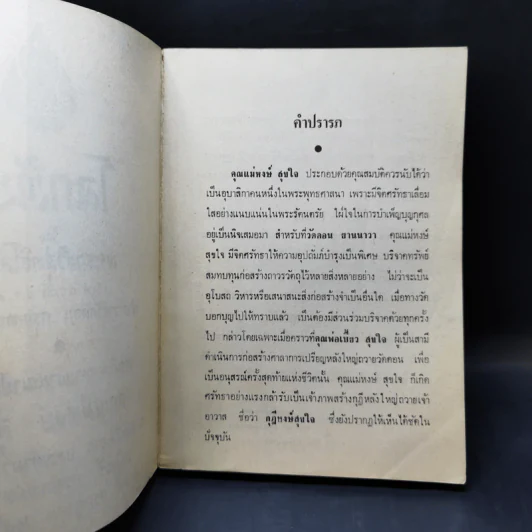 คำปรารภ
คุณแม่หงษ์ สุขใจ ประกอบด้วยคุณสมบัติควรนับได้ว่า
เป็นอุบาสิกาคนหนึ่งในพระพุทธศาสนา เพราะมีจิตศรัทธาเลื่อม
ใสอย่างแนบแน่นในพระรัตนตรัย ใฝ่ใจในการบำเพ็ญบุญกุศล
อยู่เป็นนิจเสมอมา สำหรับที่วัดดอน ยานนาวา คุณแม่หงษ์
สุขใจ มีจิตศรัทธาให้ความอุปถัมภ์บำรุงเป็นพิเศษ บริจาคทรัพย์
สมทบทุนก่อสร้างถาวรวัตถุไว้หลายสิ่งหลายอย่าง ไม่ว่าจะเป็น
อุโบสถ วิหารหรือเสนาสนะสิ่งก่อสร้างจำเป็นอื่นใด เมื่อทางวัด
บอกบุญไปให้ทราบแล้ว เป็นต้องมีส่วนร่วมบริจาคด้วยทุกครั้ง
ไป กล่าวโดยเฉพาะเมื่อคราวที่คุณพ่อเหี่ยว สุขใจ ผู้เป็นสามี
ดำเนินการก่อสร้างศาลาการเปรียญหลังใหญ่ถวายวัดดอน เพื่อ
เป็นอนุสรณ์ครั้งสุดท้ายแห่งชีวิตนั้น คุณแม่หงษ์ สุขใจ ก็เกิด
ศรัทธาอย่างแรงกล้ารับเป็นเจ้าภาพสร้างกุฏิหลังใหญ่ถวายเจ้า
อาวาส ชื่อว่า กุฏิหงษ์สุขใจ ซึ่งยังปรากฏให้เห็นได้ชัดใน
ปัจจุบัน